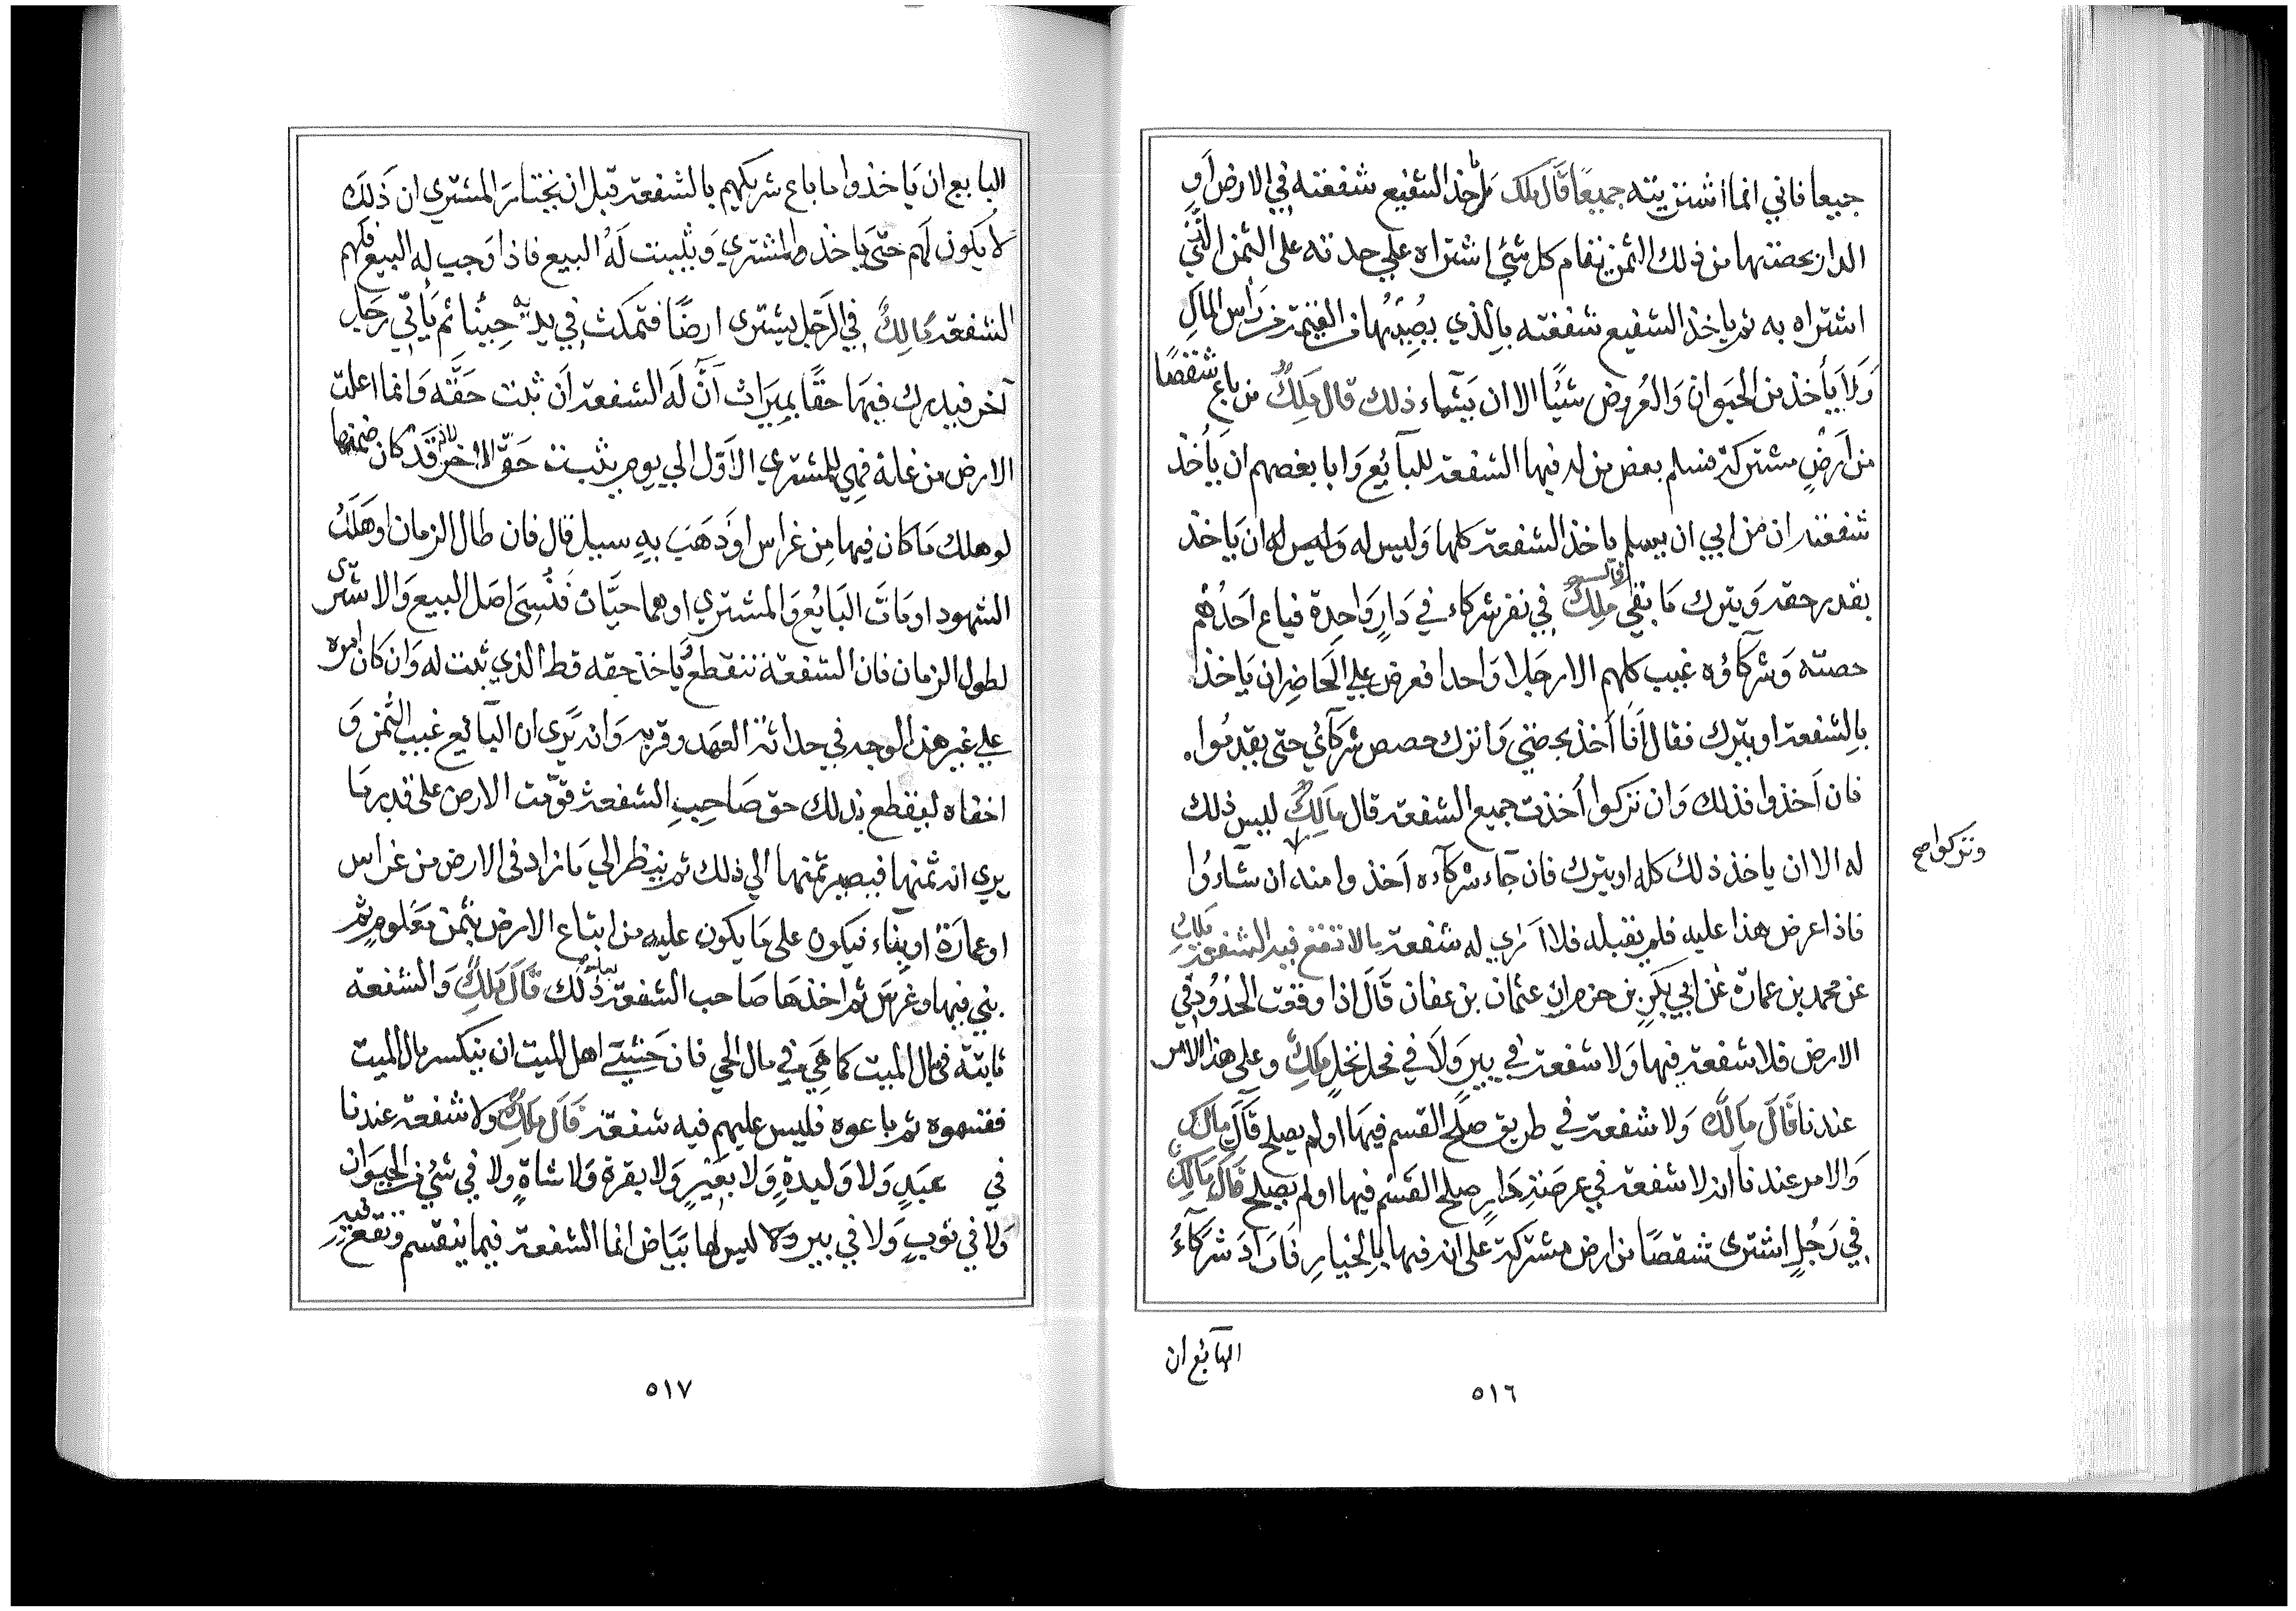 جميعا فاني انما اشتريته جميعًا قَالَ ملك يأخذ الشفيع شفعته في الارض اَو
الدار بحصتها من ذلك الثمن يقام كل شئ اشتراه علي حدته على الثمن الَّذِي
اشتراه به ثم ياخذ الشفيع شفعته بِالذي يُصِيبُها من القيمة من رَأس المالِ
وَلاَ يأخذ من الحَيَوان وَالعُروض شَيْئًا الا ان يَشَاء ذلك قال مَلِكٌ من باع شقصًا
من اَرضٍ مشتركة فسلم بعض من له فيها الشفعة للبآئع وَابا بعضهم ان يَأخذ
شفعته ان من ابي ان يسلم ياخذ الشفعة كلها وَليس له وَليس له ان يَاخذ
بقدر حقه وَيترك مَا بقي قال مٰلِكٌ في نفر شركاء في دَارٍ وَاحِدة فباع اَحَدُهُم
حصته وَشركاؤه غيب كلهم الا رَجلا وَاحدا فعرض علي الحَاضِر ان يَاخذ
بِالشفعة او يترك فقال اَنا اَخذ بحصتي وَاترك حصص شركآئي حتى يقدمُوا.
فان اَخذوا فذلك وَان تركوا اُخذت جميع الشفعة قال مَالِكٌ ليس ذلك
له الا ان ياخذ ذلك كله او يترك فان جآء شركآءه اَخذوا منه ان شآءوُا
وتركوا صح
فاذا عرض هذا عليه فلم يقبله فلا اَرٰي له شفعة مالا تقع فيه الشفعة مٰلِك
عن محمد بن عمارة عَن ابي بَكرٍ بن حزم ان عثمان بن عفان قَالَ اذا وقعت الحُدُودُ في
الارض فلا شفعة فيها وَلا شفعة في بيرٍ وَلاَ في فحل نخلٍ مٰلِكٌ وعلى هذا الامر
عندنا قَالَ مالك وَلا شفعة في طريق صلح القسم فيهَا اولم يصلح قَالَ مالك
وَالامر عندنا انه لا شفعة في عرصَة دَارٍ صلح القسم فيها اولم يصلح قَالَ مَالِكٌ
في رَجُلٍ اشترى شقصًا من ارض مشتركة على انه فيها بِالخيارِ فَارَادَ شركآءُ
البآئع ان
٥١٦
البايع ان يَاخذوا ما باع شريكهم بالشفعة قبل ان يختار المشتري ان ذَلكَ
لا يكون لَهم حتى يَاخذ المشتري وَيثبت لَهُ البيع فاذا وَجب له البيع فلهم
الشفعة مَالِكٌ في الرَجل يشترى ارضًا فتمكث في يديه حِينًا ثم يَأتي رَجل
آخر فيدرك فيهَا حقًا بمِيرَاث اَنَّ لَه الشفعة اَن ثبت حَقّه وَانما اعلت
الارض من غلة فهي للمشتري الاَوّل الي يومِ يثبت حَقّ الاخر لانه قَد كان ضمنها
لو هلك مَا كان فيها مِن غراس اوذَهَبَ بهِ سيل قال فان طال الزمان اوهَلكُ
الشهود اومَاتَ البَايُع وَالمشتري اوهما حيَّان فَنُسِيَ اصَل البيع وَالاشترى
لطول الزمان فان الشفعة تنقطعُ وياخذ حقه قط الذي ثبت له وَان كان امره
علي غير هذا الوجه في حداثة العهد وقربه وَانه يَرى ان البآئع غيب الثمن وَ
اخفاه ليقطع بذلك حق صَاحِبِ الشفعة قوّمت الارض على قدر ما
يري انه ثمنها فيصير ثمنها الي ذلك ثم ينظر الي مَا زاد في الارض من غراس
اوعمارَة اوبِنَاء فيكون على مَا يكون عليه من ابتاع الارض بثمن مَعْلومٍ ثم
بني فيها وغرَس ثم اخذهَا صَاحب الشفعة بعد ذلك قَالَ مٰلِكٌ وَالشفعة
ثابتة في مال الميت كما هَي في مال الحي فان خشي اهل الميت ان ينكسر مال الميت
فقسموه ثم باعوه فليس عليهم فيه شفعة قَالَ مٰلِكٌ ولا شفعة عندنا
في عَبدٍ وَلا وَليدةٍ وَلا بعيرٍ وَلا بقرة وَلا شاةٍ ولا في شئ من الحيَوان
وَلا في ثوبٍ وَلا في بير ولا ليس لها بَيَاض انما الشفعة فيما ينقسم وتقع فيه
٥١٧